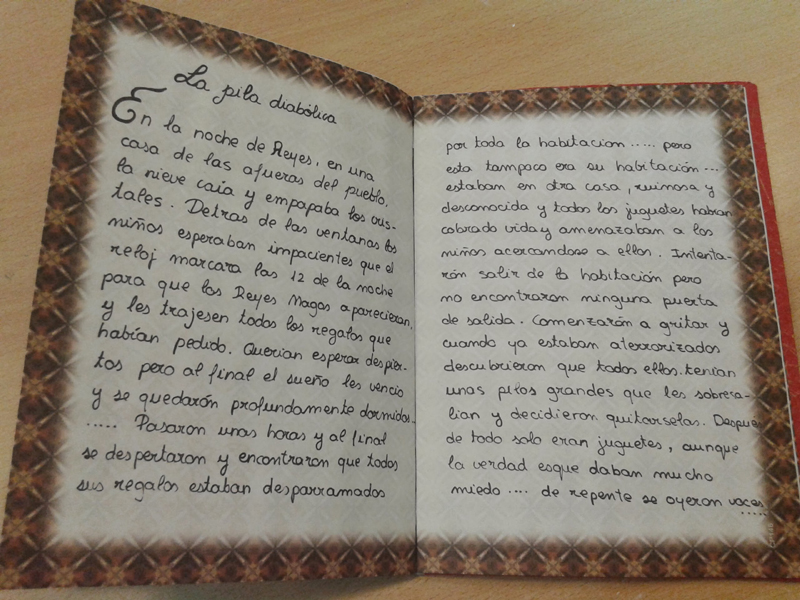 La pila diabólica
En la noche de Reyes, en una
casa de las afueras del pueblo.
la nieve caía y empapaba los cris-
tales. Detras de las ventanas los
niños esperaban impacientes que el
reloj marcara las 12 de la noche
para que los Reyes Magos aparecieran,
y les trajesen todos los regalos que
habían pedido. Querian esperar despier-
tos pero al final el sueño les vencio
y se quedarón profundamente dormidos..
..... Pasaron unas horas y al final
se despertaron y encontraron que todos
sus regalos estaban desparramados
por toda la habitacion ..... pero
esta tampoco era su habitación ...
estaban en otra casa, ruinosa y
desconocida y todos los juguetes habian
cobrado vida y amenazaban a los
niños acercandose a ellos. Intenta-
rón salir de la habitación pero
no encontraron ninguna puerta
de salida. Comenzarón a gritar y
cuando ya estaban aterrorizados
descubrieron que todos ellos. tenian
unas pilas grandes que les sobresa-
lian y decidieron quitarselas. Despues
de todo solo eran juguetes, aunque
la verdad esque daban mucho
miedo .... de repente se oyeron voces
.....